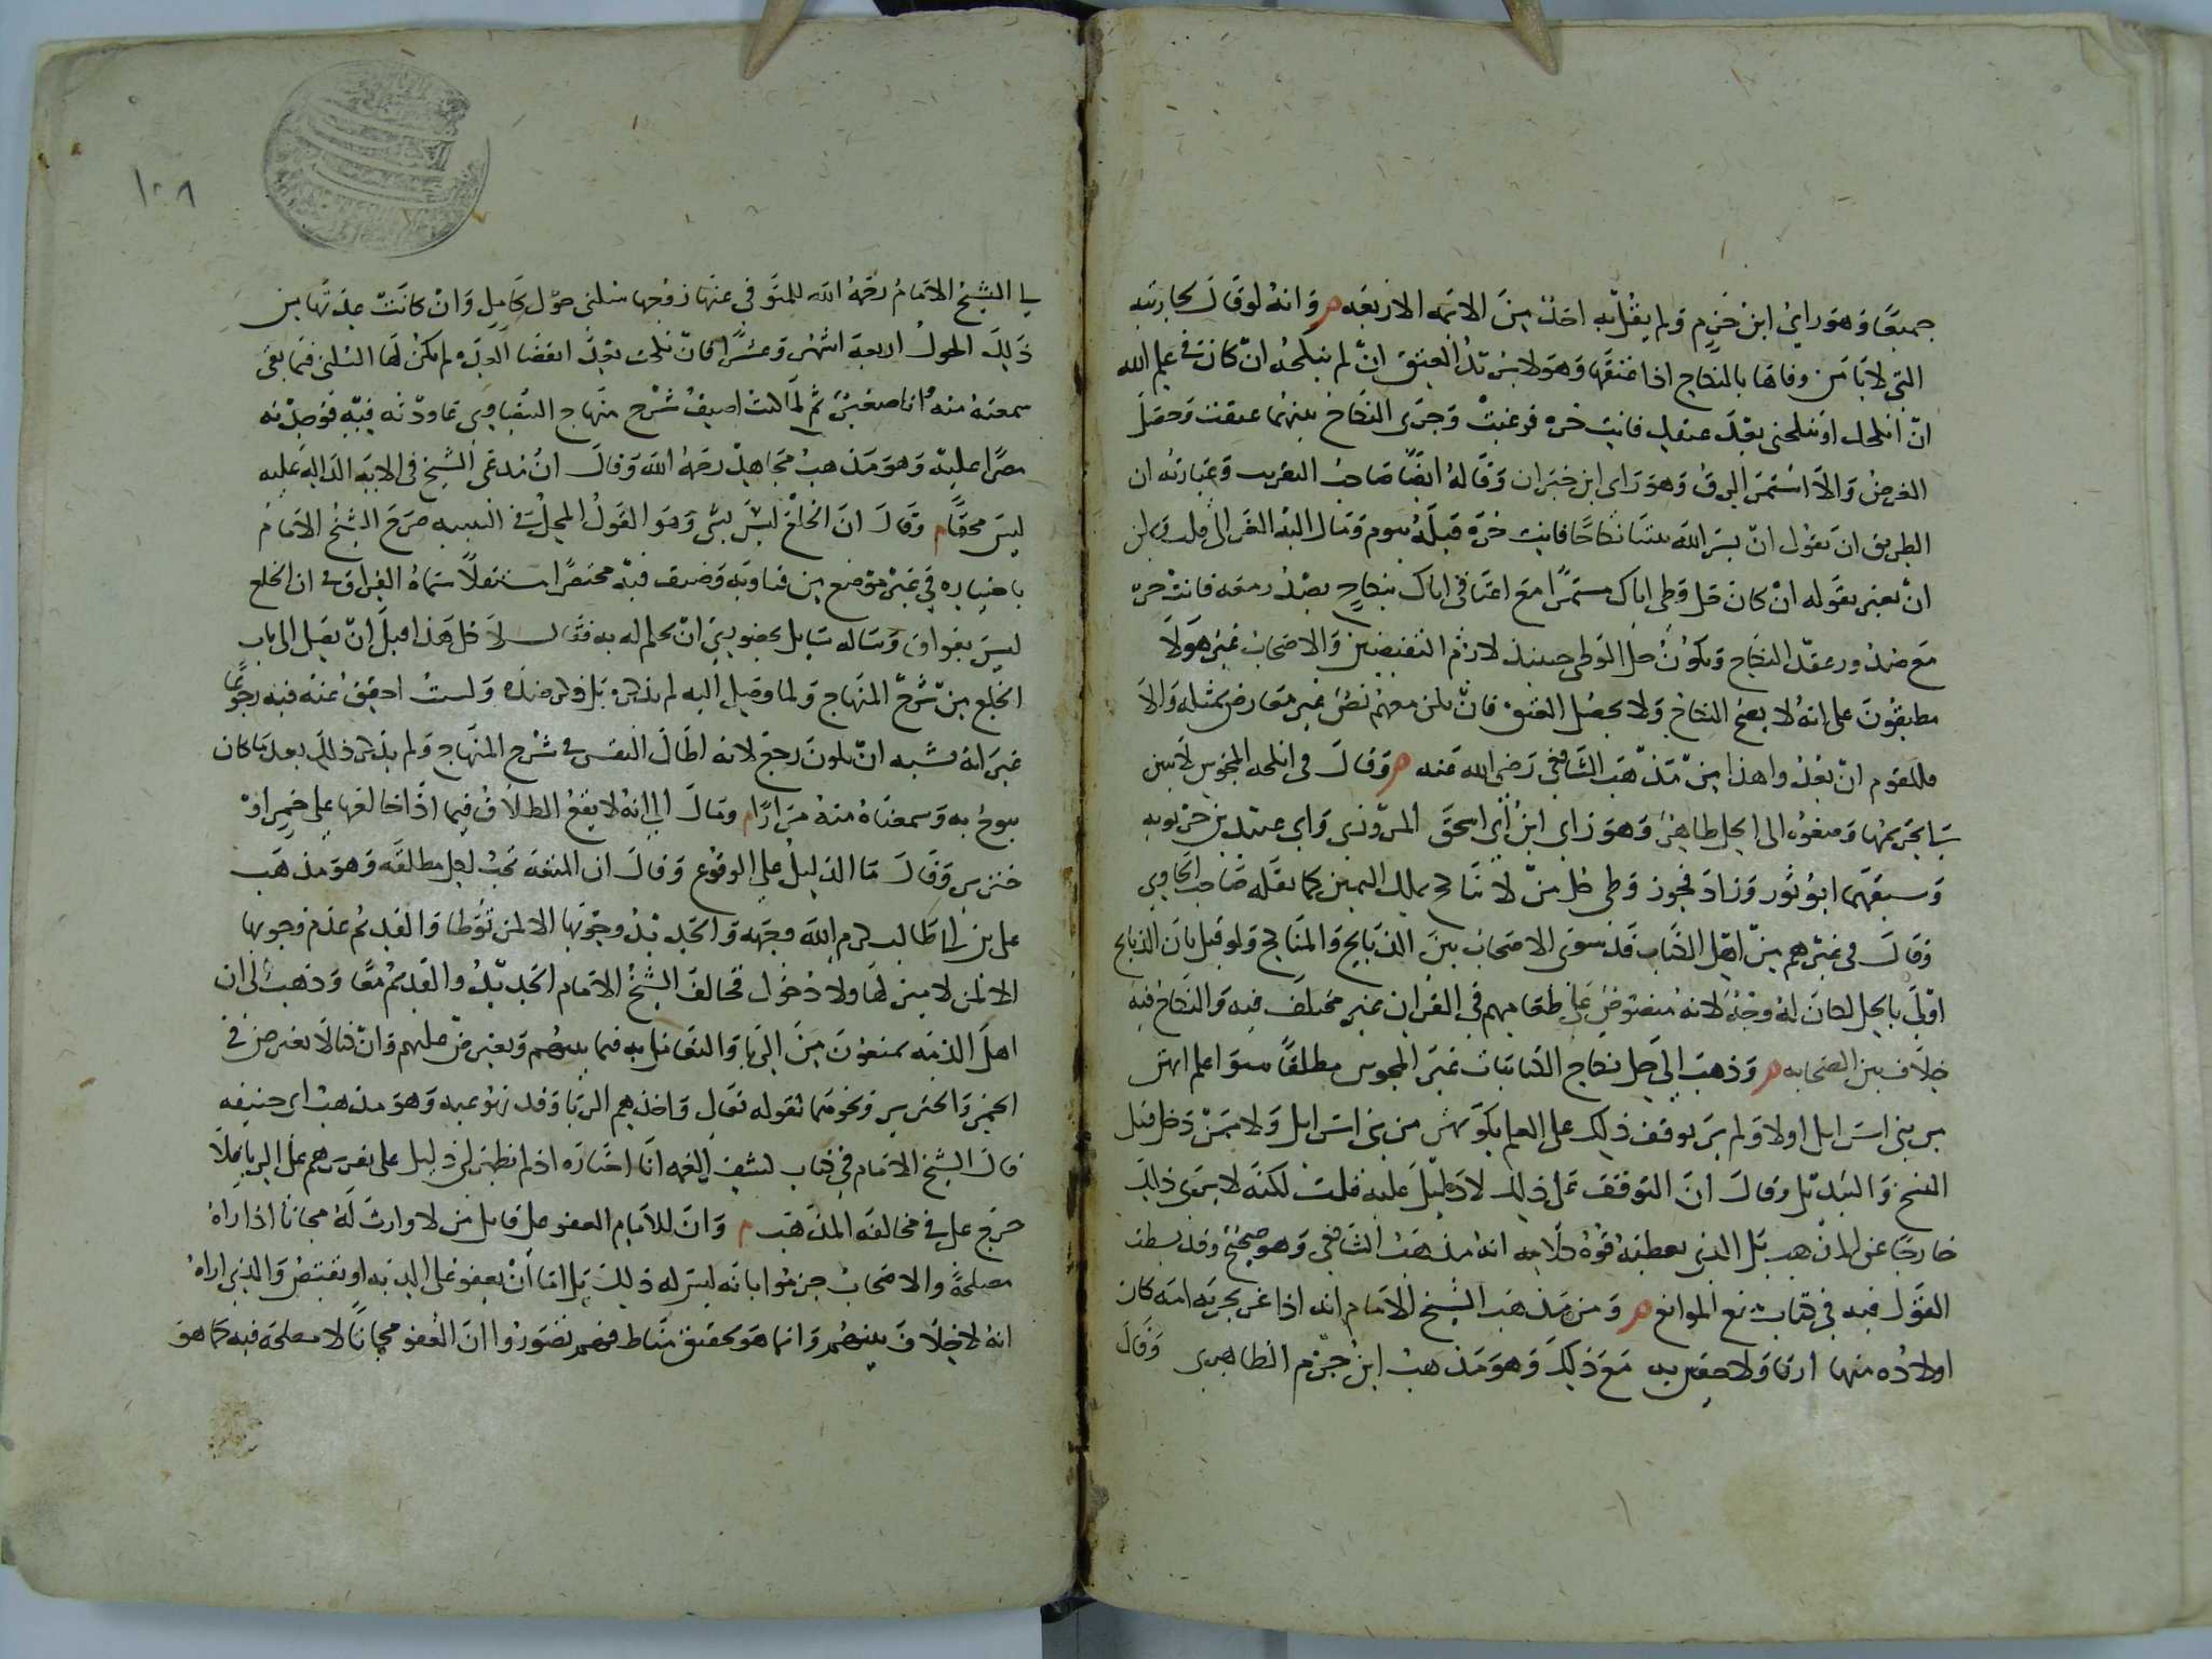 جميعًا وَهوَ رايُ ابن حَزم وَلم يقُل به احَدٌ مِنَ الائمه الاربَعَه ۞ وَانهُ لو قالَ لجاريته
التي لا يَامَن وفاءها بالنكاح اذا اعتقَها وَهوَ لا يريدُ العتق ان لم ينكحها ان كان في علم الله
انّ انكحك او تنكحيني بعْدَ عتقكِ فانتِ حُره فرغبتْ وَجَرَى النكاح بينهما عتقت وَحصَل
الغرضُ وَالاّ استمرّ الرقُ وَهوَ رَاى ابن خيران وَقالهُ ايضًا صَاحبُ التقريب وَعبارته ان
الطريق ان يقول ان يسّر الله بيننا نكاحًا فانتِ حُرّه قبلَهُ بيوم وَمَال اليه الغزالي قلت ويمكن
انْ يعبر بقوله انْ كان حل وَطى اياك مستمرًا مع اعتاقى اياك بنكاحٍ بعْدُ رمعه فانت حرّه
مَع صدُور عقد النكاح وَيكُونُ حل الوَطى حينيذ لازمُ النقيضين وَالاصحَابُ غير هَولاَ
مطبقُونَ على انهُ لا يصح النكاحُ وَلا يحصُل العتق فان يكن معهُم نصُ غير معَارض بمثله وَالاّ
فللقوم انْ بعُدُوا هذا مِنْ مَذهَب الشافعى رَضي الله عَنه ۞ وَقالَ في انكحه المجُوس لاَ يبين
لنا تحريمُها وَصغوُه الى الحِل ظاهر وَهوَ رَاى ابنُ ابى اسحَق المروَزى وَابى عبيد بن حَربويه
وَسبقهَما ابوُ ثَور وَزادَ فجوز وَطى كل مِنْ لا تناكح بملك اليمين كما نقله صَاحبُ الحَاوي
وَقالَ في غيرهم مِنْ اهِل الكتاب قَد سوَى الاصحَابُ بينَ الذبَايح وَالمنَاكح وَلو قيل بان الذبايح
اوّلى بالحِل لكانَ لهُ وَجْهُ لانهُ منصُوصُ عَلى طعَامِهم في القران غير مختلَف فيه وَالنكاحُ فيه
خِلاَف بين الصَحَابه ۞ وَذهبَ الى حِل نكاح الكتابيات غيرَ المجوس مطلقًا سوا علم انهن
من بنى اسرَايل اولا وَلم يَر توقف ذلك على العلم بكونهن من بنى اسرَايل وَلا بمَنْ دَخل قبل
النسخ وَالتبديل وقالَ انَ التوقفَ عَلى ذلك لا دَليْلَ عليه قلت لكنه لا يَرَى ذلِكَ
خَارجًا عن المذهب بَل الذي تعطيهُ قوة كلامه انهُ مذهَبُ الشافعى وَهوَ صحيح وقد بسطتُ
القوَل فيه في كتاب منع الموانع ۞ وَمن مَذهَب الشيخ الامَام انه اذا غر بحريّه امَه كان
اولادُه منها ارقا وَلا مع ذلِكَ وَهوَ مَذهبُ ابنُ حزم الظاهِرى وَقالَ
١٠٨
لي الشيخُ الامَامُ رحَمهُ الله للمتوَفى عنها زوْجها سكنى حوْل كامِل وَانْ كانَتْ عِدتُها من
ذلِكَ الحولُ اربعَةَ اشهُر وَعشرًا فانْ نكحت بَعْدَ انقضا العِدّه لم يكنْ لَها السُكنى فيمَا بقى
سمعته منه وانا صغيرٌ ثمَ لمَا كنتُ اضيفُ شرْح منهَاج البيضَاوي عَاودْته فيه فوَجدْته
مصِرًا عليه وَهوَ مَذهبُ مجَاهِد رحَمهُ الله وَقالَ انُ مُدعَى الشيخ في الايَه الدالة عليه
ليسَ محققًا ۞ وَقالَ انَ الخلعَ ليسَ بشى وَهوَ القوَلُ المحِكى في التنبيه صرّحَ الشيخ الامَامُ
باختياره في غير مَوضع مِن فتاويه وَصنف فيه مختصرًا مستقلاً سَماهُ الفِراق في ان الخلع
ليسَ بفراق وَسَاله سَايل بحضوري انْ يحكم له به فقَالَ لا حتى هَذا قبلَ انْ يصل الى باب
الخلع مِنْ شرْح المنهَاج وَلما وصَل اليه لم يذكره بَل ذكر ضِدّه وَلستُ احقِقُ عنْه فيه رجوعًا
غير انهُ يشبه انْ يكونَ رجعَ لانه اطَالَ النفس في شرْح المنهَاج وَلم يذكر ذلك بعدَمَا كان
يبوحُ به وَسمعنَاهُ منهُ مرَارًا ۞ وقالَ لي انهُ لا يقعُ الطلاَقُ فيما اذَا خالعَها على خمرٍ اوْ
خنزير وَقالَ مَا الدَليلُ على الوقوُع وَقالَ ان المتعَة تجبُ لكِل مطلقَه وَهوَ مذهَب
على بن ابى طَالب كرم الله وجَهه وَالجَدِيدُ وجُوبُها الا لمن لم تُوطا وَالقَديمُ عدَم وجوبها
الا لمن لا مهر لَها ولا دُخوُل فخالفَ الشيخُ الامَام الجَدِيدُ والقدِيمُ مَعًا وَذهبَ الى ان
اهلَ الذمّه يمنعوُنَ مِنَ الربَا وَالتقَابل به فيما بينهُم وَيعترض عليهم وَانْ كنا لا نعترضُ في
الخمر وَالخنزير ونحوهَما لقوله تعَالى وَاخذهِم الربَا وَقد نهُوا عنه وَهوَ مذهبُ ابى حنيفه
قالَ الشيخ الامَام في كتاب كشِف الغمه انا اختاره اذ لم يظهر لي دَليل على تقريرهم على الربا
حرج على في مخالفه المذهَب ۞ وَانَ للامَام العفو عل قابل من لا وارثَ لَهُ مجانا اذا رَاهُ
مصلحةً والاصحَابُ جزموُا بانه ليسَ له ذلك بَل امَا انْ يعفو عَلى الديه او يقتصُ وَالذي اراهُ
انهُ لاخِلاَفَ بينهُم وَانما هوَ تحقيق مَنَاط فهم تصَوروُا انَ العَفو مجانًا لا مصلحة فيه كما هوَ